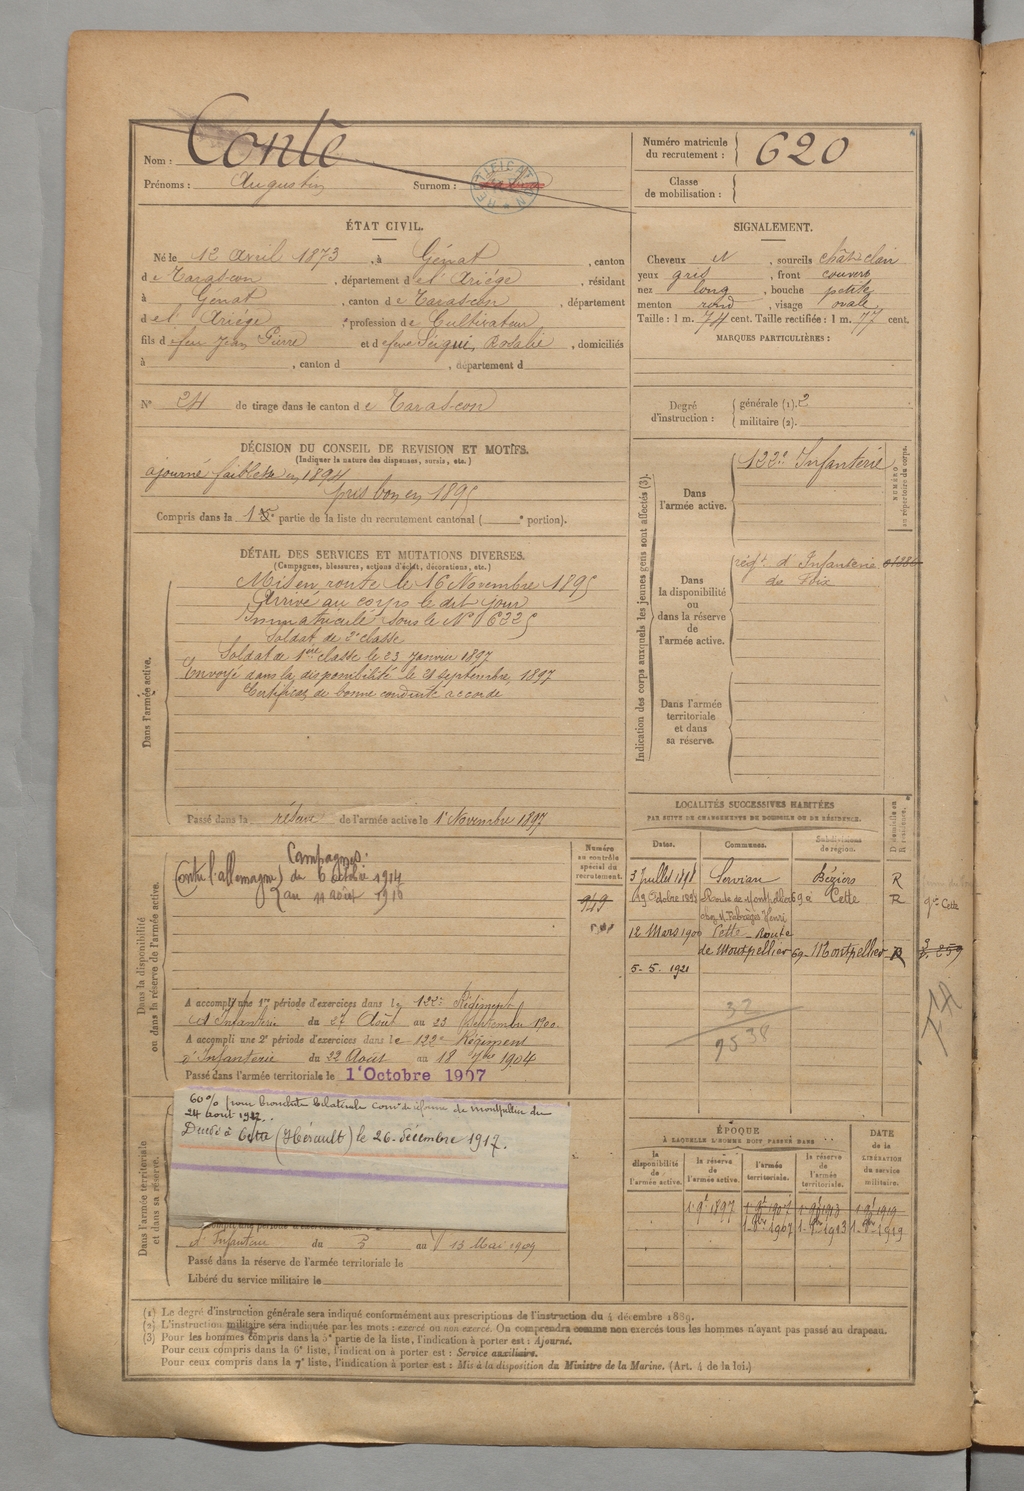 Nom : Conte
Prénoms : Augustin Surnom :
RECTIFICATION
Numéro matricule du recrutement : 620
Classe de mobilisation :
ÉTAT CIVIL.
Né le 12 Avril 1873, à Génat, canton
de Tarascon, département de l'Ariége, résidant
à Génat, canton de Tarascon, département
de l'Ariége, profession de Cultivateur
fils de feu Jean Pierre et de feue Seigui, Rosalie, domiciliés
à , canton d , département d
N° 24 de tirage dans le canton de Tarascon
SIGNALEMENT.
Cheveux N, sourcils chât clair
yeux gris, front couvert
nez long, bouche petite
menton rond, visage ovale
Taille : 1 m. 74 cent. Taille rectifiée : 1 m. 77 cent.
MARQUES PARTICULIÈRES :
Degré d'instruction : générale (1). 2
militaire (2).
DÉCISION DU CONSEIL DE REVISION ET MOTIFS.
(Indiquer la nature des dispenses, sursis, etc.)
ajourné faiblesse en 1894
pris bon en 1895
Compris dans la 1e partie de la liste du recrutement cantonal ( e portion).
DÉTAIL DES SERVICES ET MUTATIONS DIVERSES.
(Campagnes, blessures, actions d'éclat, décorations, etc.)
Dans l'armée active.
Mis en route le 16 Novembre 1895
Arrivé au corps le dit jour
Immatriculé sous le N° 6325
Soldat de 2e classe
Soldat de 1ère classe le 23 Janvier 1897
Envoyé dans la disponibilité le 21 septembre 1897
Certificat de bonne conduite accordé
Passé dans la réserve de l'armée active le 1er Novembre 1897
Indication des corps auxquels les jeunes gens sont affectés (3).
NUMÉRO au répertoire du corps.
Dans l'armée active. 122e Infanterie
Dans la disponibilité ou dans la réserve de l'armée active. régt d'Infanterie
Dans l'armée territoriale et dans sa réserve.
LOCALITÉS SUCCESSIVES HABITÉES
PAR SUITE DE CHANGEMENTS DE DOMICILE OU DE RÉSIDENCE.
Dates. Communes. Subdivisions de région. D domicile ou R résidence.
3 Juillet 1898 Servian Béziers R
19 Octobre Route de Montpellier 69 Cette R
chez M. Fabrèges Henri
12 Mars 1900 Cette Route
de Montpellier 69 Montpellier R
5-5. 1921
gie Cette
3.259
32
9538
Dans la disponibilité ou dans la réserve de l'armée active.
Numéro au contrôle spécial du recrutement.
949
Campagnes :
Contre l'allemagne du 6 octobre 1914
au 11 août 1916
A accompli une 1re période d'exercices dans le 122e Régiment
d'Infanterie du 27 Août au 23 Septembre 1900
A accompli une 2e période d'exercices dans le 122e Régiment
d'Infanterie du 22 Août au 18 7bre 1904
Passé dans l'armée territoriale le 1er Octobre 1907
Dans l'armée territoriale et dans sa réserve.
60% pour bronchite bilatérale Comon de réforme de Montpellier du
24 août 1917.
Décédé à Cette (Hérault) le 26 décembre 1917.
d'Infanterie du 5 au 13 Mai 1909
Passé dans la réserve de l'armée territoriale le
Libéré du service militaire le
ÉPOQUE
À LAQUELLE L'HOMME DOIT PASSER DANS :
DATE de la LIBÉRATION du service militaire.
la disponibilité de l'armée active. la réserve de l'armée active. l'armée territoriale. la réserve de l'armée territoriale.
1 9t 1897 1 9t 1907 1 9t 1913 1 9t 1919
1 8bre 1907 1 8bre 1913 1 8bre 1919
(1) Le degré d'instruction générale sera indiqué conformément aux prescriptions de l'instruction du 4 décembre 1889.
(2) L'instruction militaire sera indiquée par les mots : exercé ou non exercé. On comprendra comme non exercés tous les hommes n'ayant pas passé au drapeau.
(3) Pour les hommes compris dans la 5e partie de la liste, l'indication à porter est : Ajourné.
Pour ceux compris dans la 6e liste, l'indication à porter est : Service auxiliaire.
Pour ceux compris dans la 7e liste, l'indication à porter est : Mis à la disposition du Ministre de la Marine. (Art. 4 de la loi.)